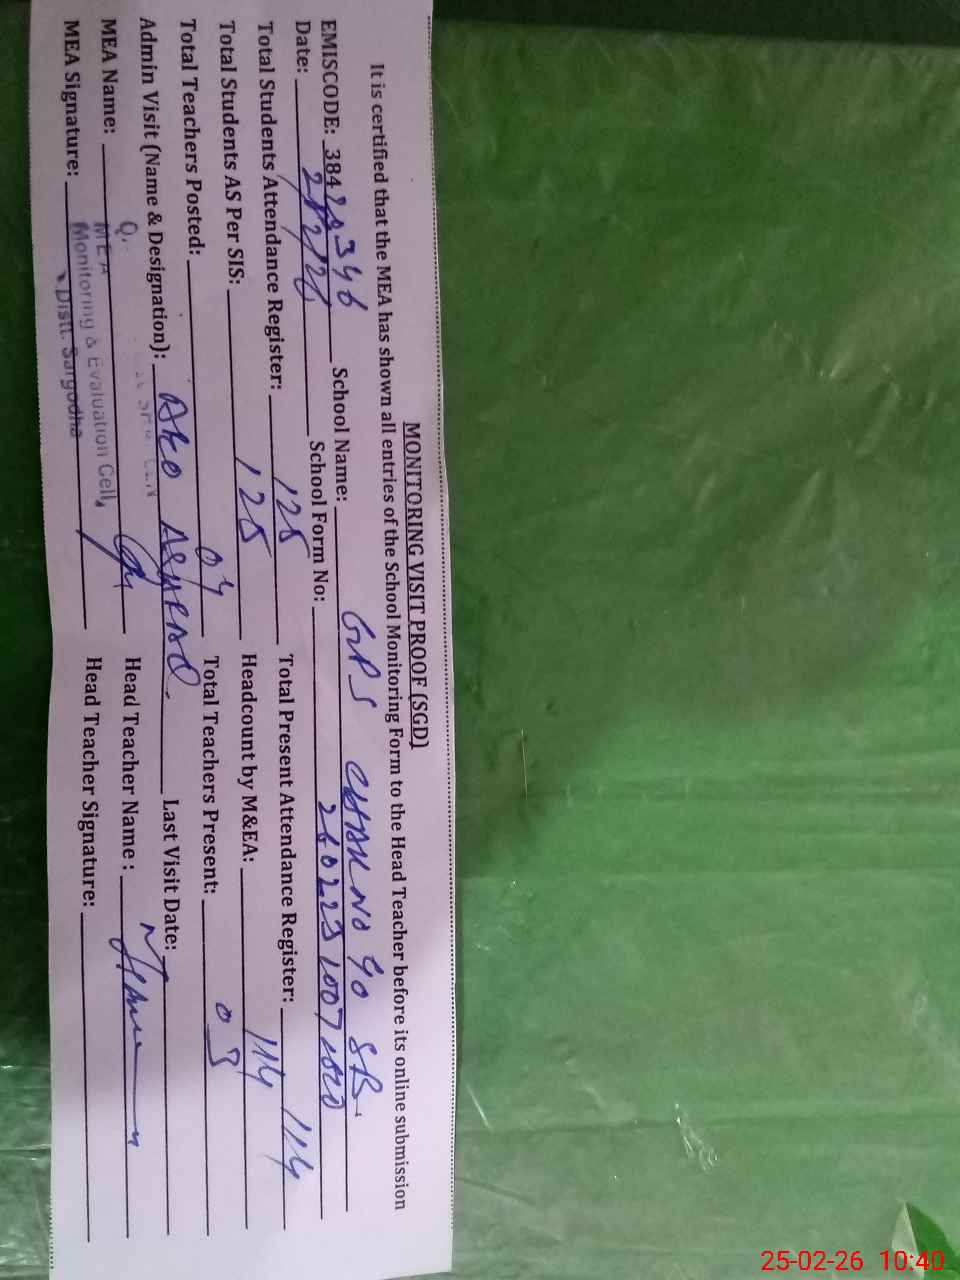 MONITORING VISIT PROOF (SGD)
It is certified that the MEA has shown all entries of the School Monitoring Form to the Head Teacher before its online submission
EMISCODE: 38420346 School Name: GPS CHAK NO 90 SB.
Date: School Form No:
Total Students Attendance Register: 125 Total Present Attendance Register: 114
Total Students AS Per SIS: 125 Headcount by M&EA: 114
Total Teachers Posted: 04 Total Teachers Present: 03
Admin Visit (Name & Designation): AEO Last Visit Date:
MEA Name: Head Teacher Name :
MEA Signature: Head Teacher Signature:
MEA
Monitoring & Evaluation Cell,
Distt. Sargodha
25-02-26 10:40